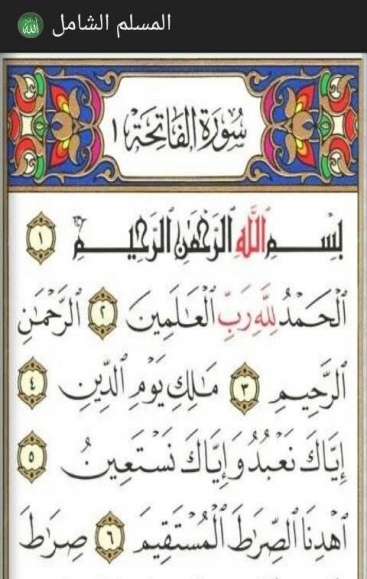 المسلم الشامل
سُورَةُ الفَاتِحَة ١
بِسْمِ ٱللَّهِ ٱلرَّحْمَٰنِ ٱلرَّحِيمِ ١
ٱلْحَمْدُ لِلَّهِ رَبِّ ٱلْعَٰلَمِينَ ٢ ٱلرَّحْمَٰنِ
ٱلرَّحِيمِ ٣ مَٰلِكِ يَوْمِ ٱلدِّينِ ٤
إِيَّاكَ نَعْبُدُ وَإِيَّاكَ نَسْتَعِينُ ٥
ٱهْدِنَا ٱلصِّرَٰطَ ٱلْمُسْتَقِيمَ ٦ صِرَٰطَ